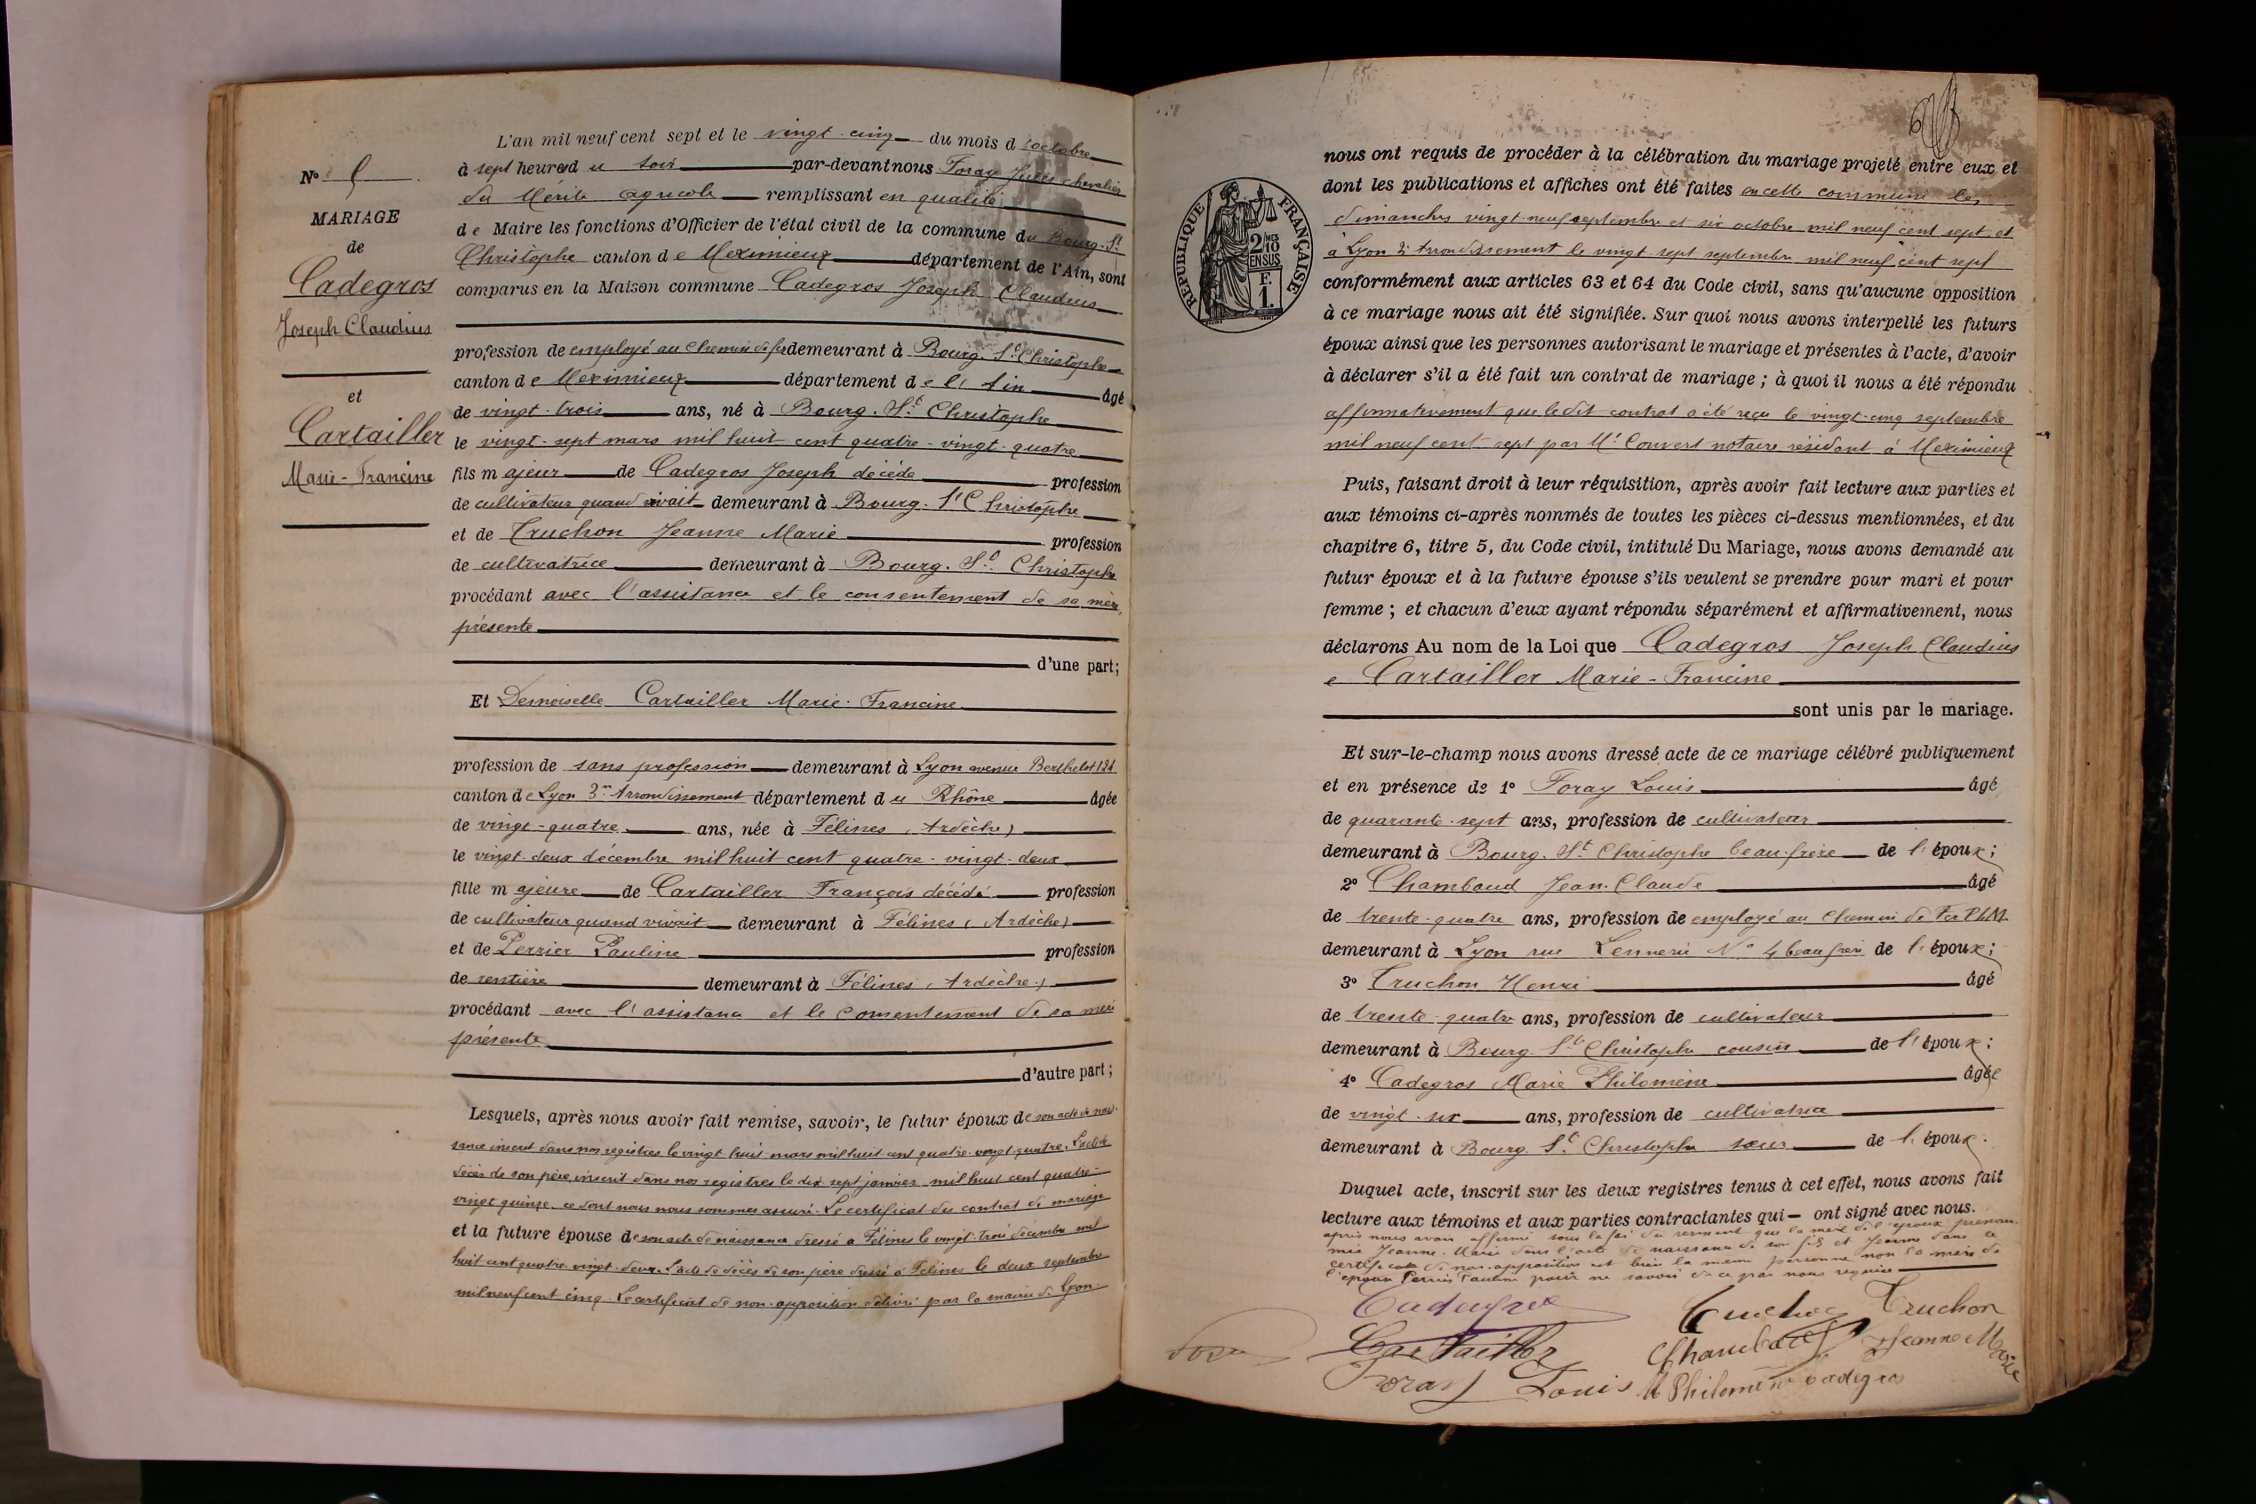 L'an mil neuf cent sept et le vingt-cinq du mois d'octobre
à sept heures du soir par-devant nous Foray Jules chevalier
du Mérite agricole remplissant en qualité
de Maire les fonctions d'Officier de l'état civil de la commune du Bourg-St
Christophe canton de Meximieux département de l'Ain, sont
comparus en la Maison commune Cadegros Joseph Claudius
profession de employé au chemin de fer demeurant à Bourg-St Christophe
canton de Meximieux département de l'Ain âgé
de vingt-trois ans, né à Bourg-St Christophe
le vingt-sept mars mil huit cent quatre-vingt-quatre
fils majeur de Cadegros Joseph décédé profession
de cultivateur quand vivait demeurant à Bourg-St Christophe
et de Truchon Jeanne Marie profession
de cultivatrice demeurant à Bourg-St Christophe
procédant avec l'assistance et le consentement de sa mère
présente
d'une part;
Et Demoiselle Cartailler Marie-Francine
profession de sans profession demeurant à Lyon avenue Berthelot 121
canton de Lyon 3me Arrondissement département du Rhône âgée
de vingt-quatre ans, née à Félines (Ardèche)
le vingt-deux décembre mil huit cent quatre-vingt-deux
fille majeure de Cartailler François décédé profession
de cultivateur quand vivait demeurant à Félines (Ardèche)
et de Perrier Pauline profession
de rentière demeurant à Félines (Ardèche)
procédant avec l'assistance et le consentement de sa mère
présente
d'autre part;
Lesquels, après nous avoir fait remise, savoir, le futur époux de son acte de nais-
sance inscrit dans nos registres le vingt huit mars mil huit cent quatre-vingt-quatre. L'acte de
décès de son père, inscrit dans nos registres le dix sept janvier mil huit cent quatre-
vingt quinze, ce dont nous nous sommes assuré. Le certificat du contrat de mariage
et la future épouse de son acte de naissance dressé à Félines le vingt-trois décembre mil
huit cent quatre-vingt-deux. L'acte de décès de son père dressé à Félines le deux septembre
mil neuf cent cinq. Le certificat de non-opposition délivré par la mairie de Lyon
No
MARIAGE
de
Cadegros
Joseph Claudius
et
Cartailler
Marie-Francine
RÉPUBLIQUE FRANÇAISE
2/10MES
EN SUS
F.
1.
nous ont requis de procéder à la célébration du mariage projeté entre eux et
dont les publications et affiches ont été faites en cette commune les
dimanches vingt-neuf septembre et six octobre mil neuf cent sept et
à Lyon 3e Arrondissement le vingt sept septembre mil neuf cent sept
conformément aux articles 63 et 64 du Code civil, sans qu'aucune opposition
à ce mariage nous ait été signifiée. Sur quoi nous avons interpellé les futurs
époux ainsi que les personnes autorisant le mariage et présentes à l'acte, d'avoir
à déclarer s'il a été fait un contrat de mariage; à quoi il nous a été répondu
affirmativement que le dit contrat a été reçu le vingt-cinq septembre
mil neuf cent sept par Me Convert notaire résidant à Meximieux
Puis, faisant droit à leur réquisition, après avoir fait lecture aux parties et
aux témoins ci-après nommés de toutes les pièces ci-dessus mentionnées, et du
chapitre 6, titre 5, du Code civil, intitulé Du Mariage, nous avons demandé au
futur époux et à la future épouse s'ils veulent se prendre pour mari et pour
femme; et chacun d'eux ayant répondu séparément et affirmativement, nous
déclarons Au nom de la Loi que Cadegros Joseph Claudius
e Cartailler Marie-Francine
sont unis par le mariage.
Et sur-le-champ nous avons dressé acte de ce mariage célébré publiquement
et en présence de 1° Foray Louis âgé
de quarante-sept ans, profession de cultivateur
demeurant à Bourg-St Christophe beau-frère de l'époux;
2° Chambaud Jean-Claude âgé
de trente-quatre ans, profession de employé au chemin de Fer PLM
demeurant à Lyon rue No 4 beau frère de l'époux;
3° Truchon Henri âgé
de trente-quatre ans, profession de cultivateur
demeurant à Bourg-St Christophe cousin de l'époux;
4° Cadegros Marie Philomène âgée
de vingt-six ans, profession de cultivatrice
demeurant à Bourg-St Christophe sœur de l'époux.
Duquel acte, inscrit sur les deux registres tenus à cet effet, nous avons fait
lecture aux témoins et aux parties contractantes qui ont signé avec nous.
après nous avoir affirmé sous la foi du serment que la mère de l'époux prénom-
mée Jeanne-Marie dans l'acte de naissance de son fils et Jeanne dans le
certificat de non-opposition est bien la même personne non la mère de
l'épouse Perrier Pauline pour ne savoir de ce par nous requise
Cadegros
Truchon
Truchon
Cartailler
Chambaud
Jeanne Marie
Foray
Foray Louis
M Philomène Cadegros